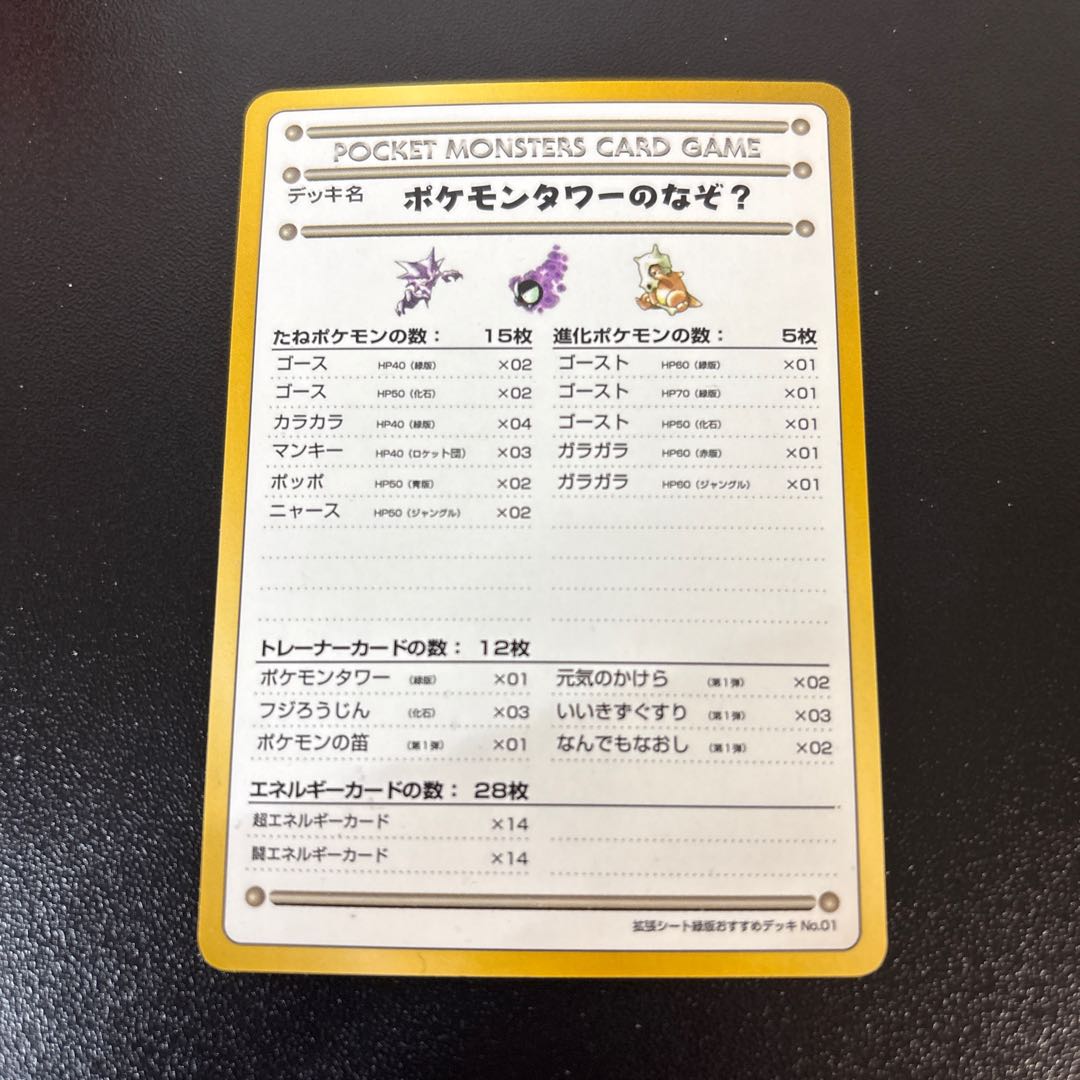 POCKET MONSTERS CARD GAME
デッキ名 ポケモンタワーのなぞ？
たねポケモンの数： 15枚
ゴース HP40（緑版） ×02
ゴース HP50（化石） ×02
カラカラ HP40（緑版） ×04
マンキー HP40（ロケット団） ×03
ポッポ HP50（青版） ×02
ニャース HP50（ジャングル） ×02
進化ポケモンの数： 5枚
ゴースト HP60（緑版） ×01
ゴースト HP70（緑版） ×01
ゴースト HP50（化石） ×01
ガラガラ HP60（赤版） ×01
ガラガラ HP60（ジャングル） ×01
トレーナーカードの数： 12枚
ポケモンタワー （緑版） ×01
フジろうじん （化石） ×03
ポケモンの笛 （第1弾） ×01
元気のかけら （第1弾） ×02
いいきずぐすり （第1弾） ×03
なんでもなおし （第1弾） ×02
エネルギーカードの数： 28枚
超エネルギーカード ×14
闘エネルギーカード ×14
拡張シート緑版おすすめデッキ No.01